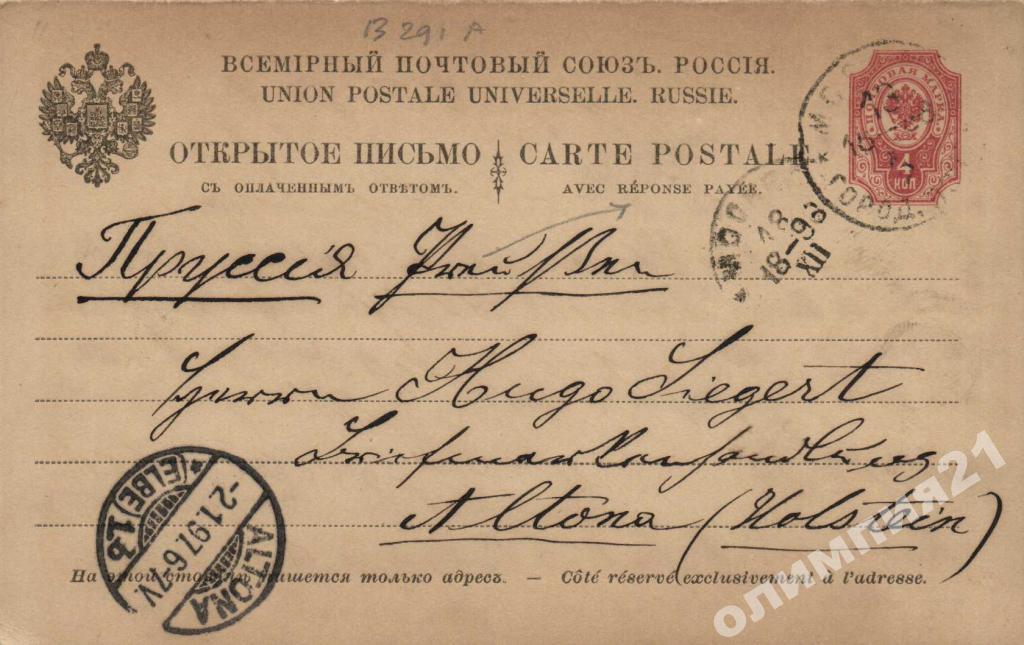 В 291 А
ВСЕМІРНЫЙ ПОЧТОВЫЙ СОЮЗЪ. РОССІЯ.
UNION POSTALE UNIVERSELLE. RUSSIE.
ОТКРЫТОЕ ПИСЬМО CARTE POSTALE.
СЪ ОПЛАЧЕННЫМЪ ОТВѢТОМЪ. AVEC RÉPONSE PAYÉE.
ПОЧТОВАЯ МАРКА
4 КОП
ГОРОД.
18
18-96
XII
Пруссія Preußen
Herrn Hugo Siegert
Briefmarkenhandlung
Altona (Holstein)
ALTONA
*(ELBE) 1 b
-2.1.97.6-7.V.
На этой сторонѣ пишется только адресъ. — Côté réservé exclusivement à l'adresse.
олимпия21